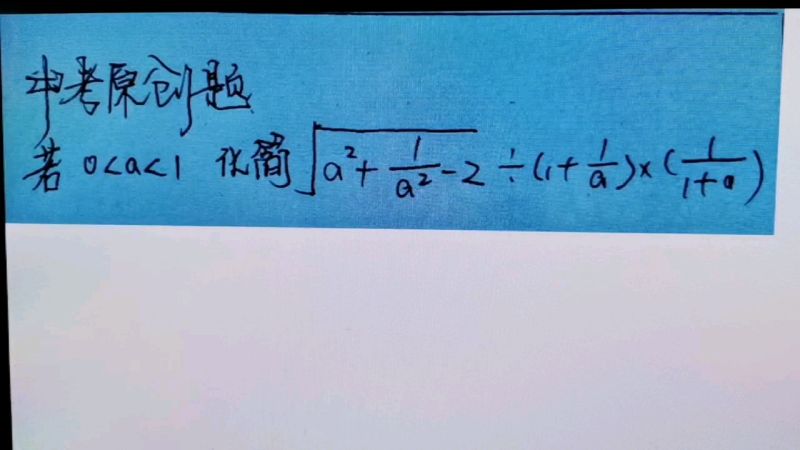 中考原创题
若 0<a<1 化简 √(a²+1/a²-2) ÷(1+1/a)×(1/(1+a))